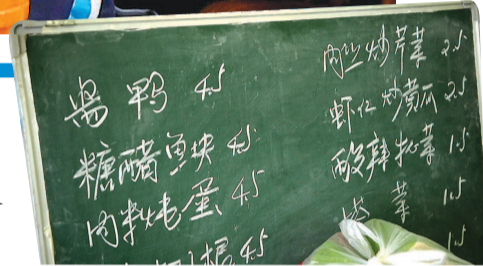 鸭 4.5
糖醋鱼块 4.5
肉末炖蛋 4.5
4.5
肉丝炒芹菜 2.5
虾仁炒黄瓜 2.5
酸辣包菜 1.5
菜 1.5
1.5